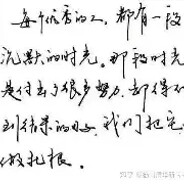 每个优秀的人,都有一段
沉默的时光。那段时光
是付出了很多努力,却得不
到结果的日子,我们把它
做扎根。
知乎